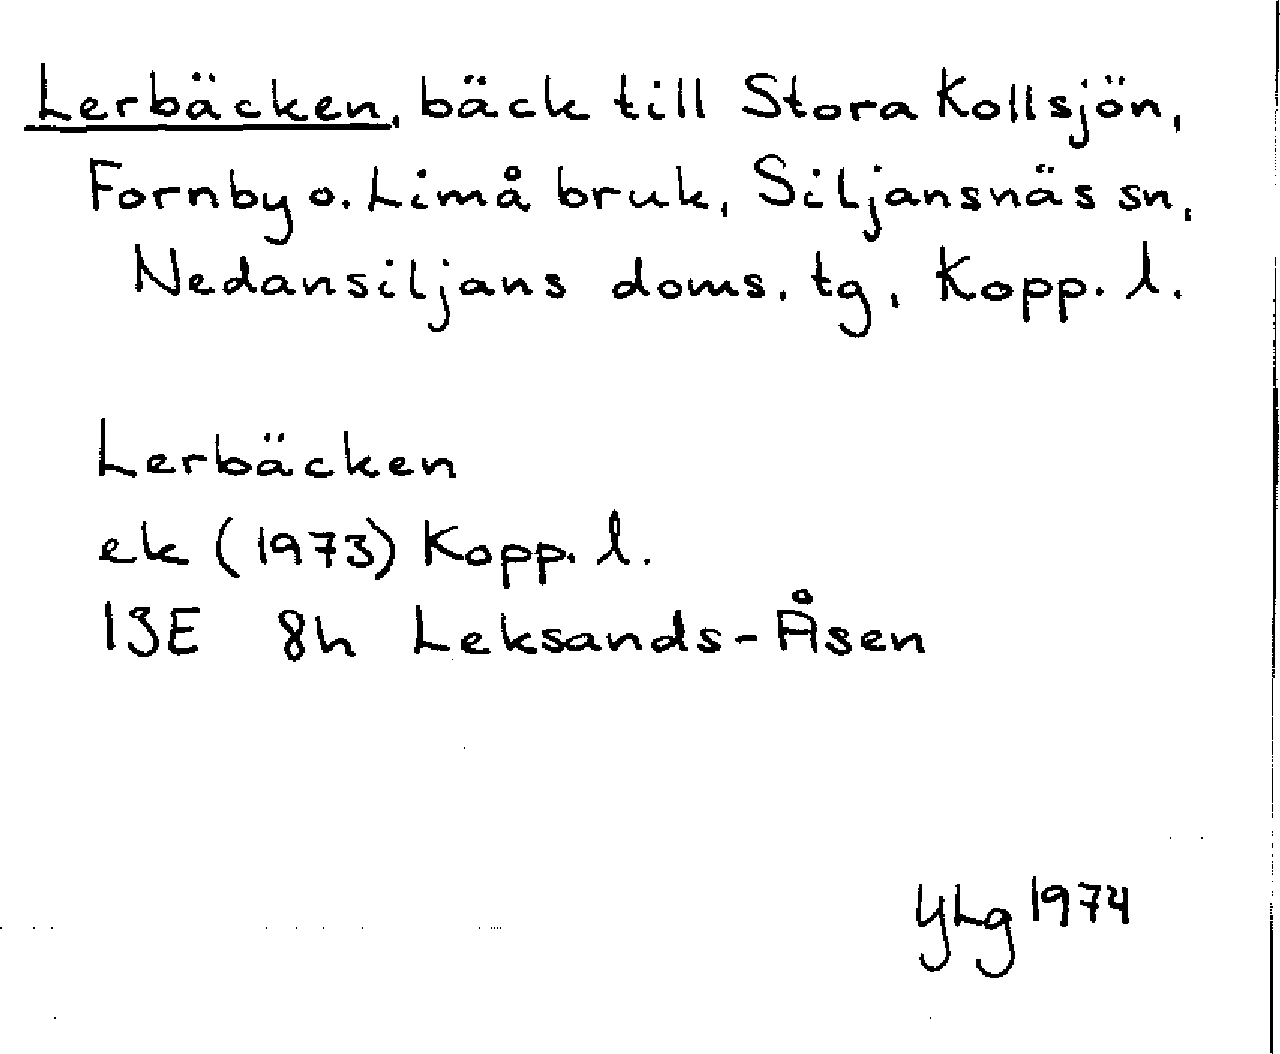 Lerbäcken, bäck till Stora Kollsjön,
Fornby o. Limå bruk, Siljansnäs sn,
Nedansiljans doms. tg, Kopp. l.
Lerbäcken
ek (1973) Kopp. l.
13E 8h Leksands-Åsen
YLg 1974